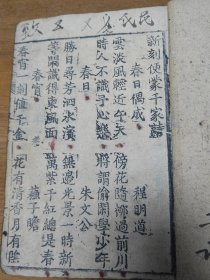 新刻便蒙千家詩
春日偶成 程明道
雲淡風輕近午天 傍花隨柳過前川
時人不識予心樂 將謂偷閒學少年
春日 朱文公
勝日尋芳泗水濱 無邊光景一時新
等閒識得東風面 萬紫千紅總是春
春宵 蘇子瞻
春宵一刻值千金 花有清香月有陰